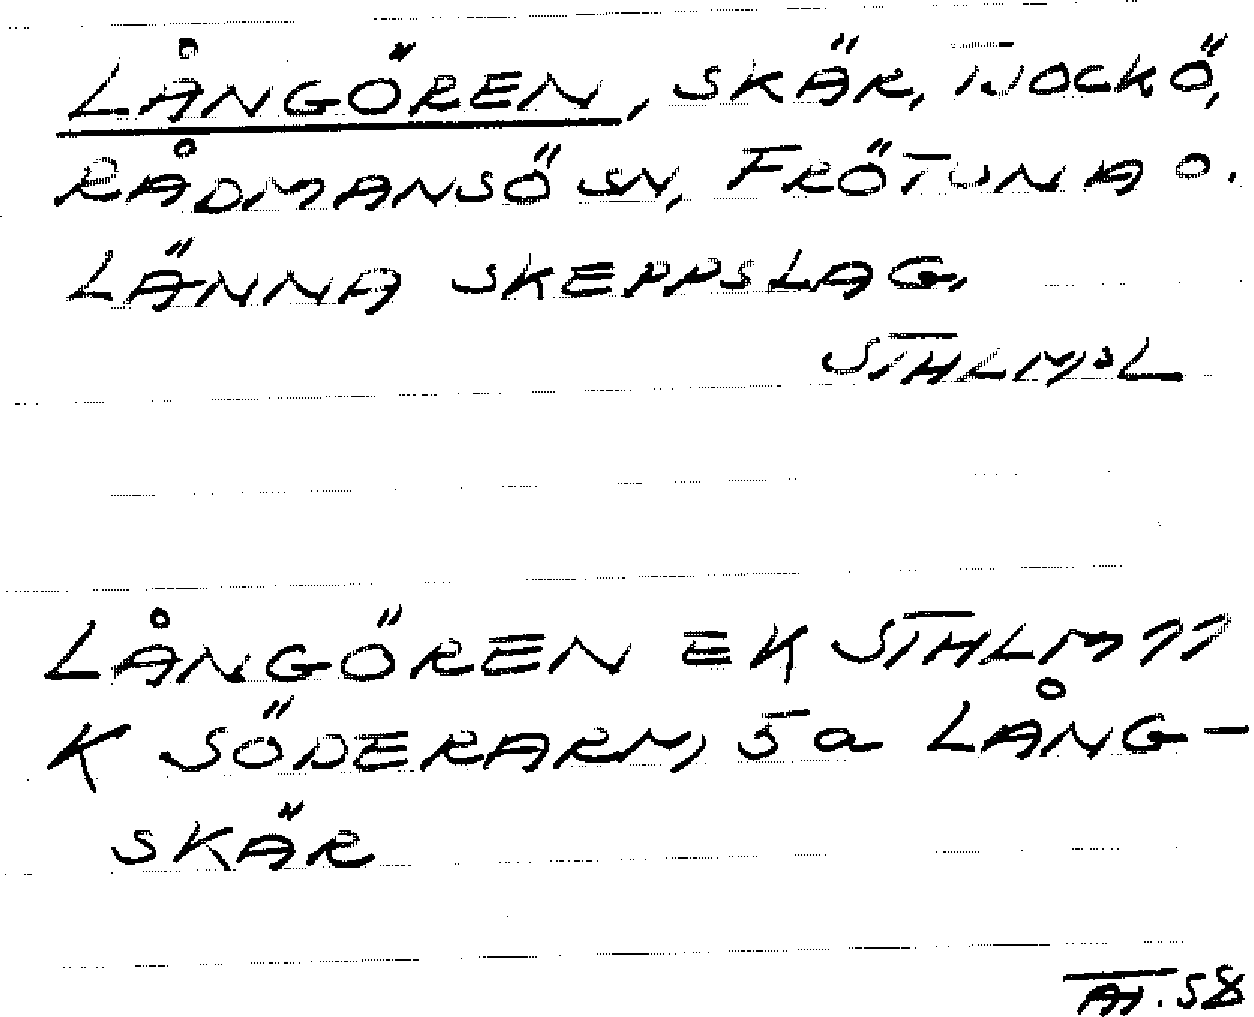 LÅNGÖREN, SKÄR, TJOCKÖ,
RÅDMANSÖ SN, FRÖTUNA O.
LÄNNA SKEPPSLAG,
STHLMSL
LÅNGÖREN EK STHLM 77
K SÖDERARM, 5a LÅNG-
SKÄR
AT. 58